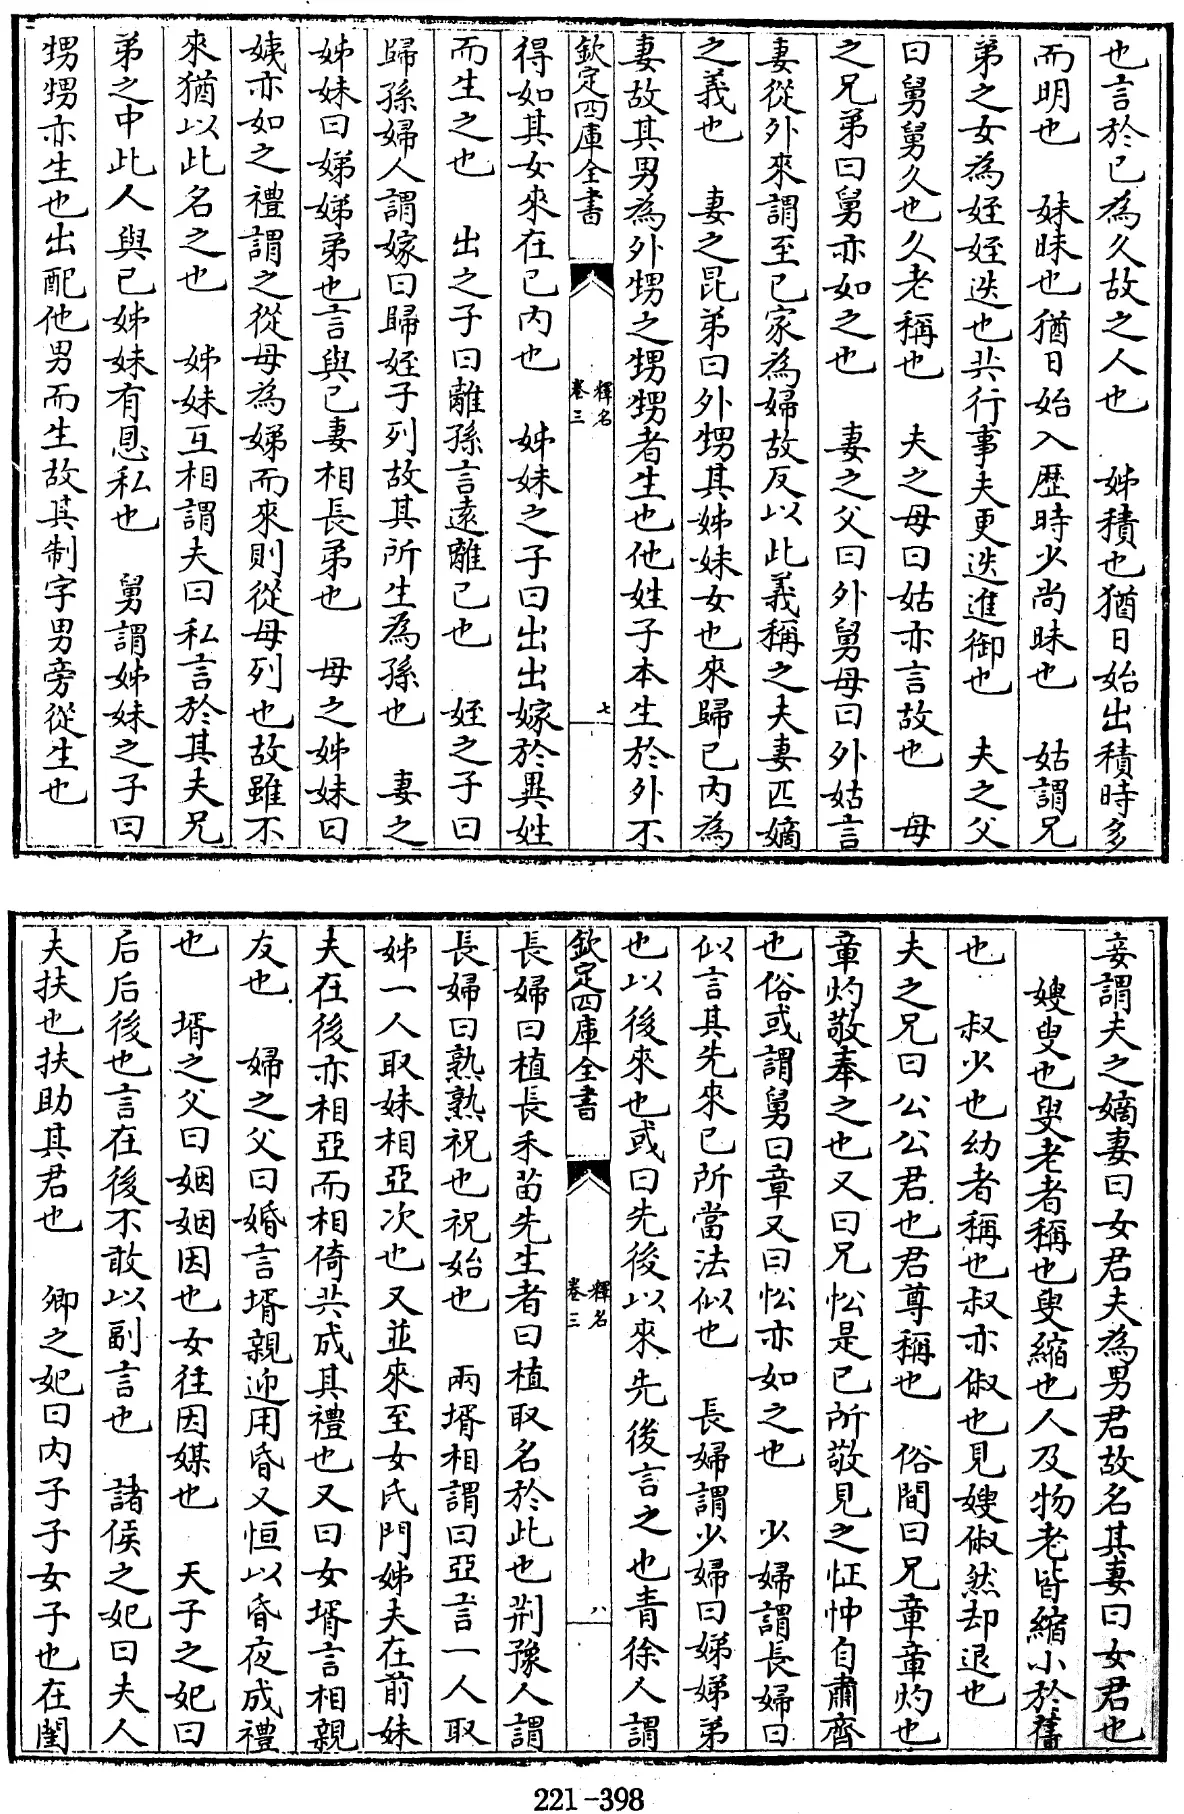 也言於已為久故之人也　姊積也猶日始出積時多
而明也　妹昧也猶日始入歷時少尚昧也　姑謂兄
弟之女為姪姪迭也共行事夫更迭進御也　夫之父
曰舅舅久也久老稱也　夫之母曰姑亦言故也　母
之兄弟曰舅亦如之也　妻之父曰外舅母曰外姑言
妻從外來謂至已家為婦故反以此義稱之夫妻匹嫡
之義也　妻之昆弟曰外甥其姊妹女也來歸已內為
妻故其男為外甥之甥甥者生也他姓子本生於外不
欽定四庫全書
釋名
卷三
七
得如其女來在已內也　姊妹之子曰出出嫁於異姓
而生之也　出之子曰離孫言遠離已也　姪之子曰
歸孫婦人謂嫁曰歸姪子列故其所生為孫也　妻之
姊妹曰娣娣弟也言與已妻相長弟也　母之姊妹曰
姨亦如之禮謂之從母為娣而來則從母列也故雖不
來猶以此名之也　姊妹互相謂夫曰私言於其夫兄
弟之中此人與已姊妹有恩私也　舅謂姊妹之子曰
甥甥亦生也出配他男而生故其制字男旁從生也
妾謂夫之嫡妻曰女君夫為男君故名其妻曰女君也
嫂叟也叟老者稱也叟縮也人及物老皆縮小於舊
也　叔少也幼者稱也叔亦俶也見嫂俶然却退也
夫之兄曰公公君也君尊稱也　俗間曰兄章章灼也
章灼敬奉之也又曰兄忪是已所敬見之怔忡自肅齊
也俗或謂舅曰章又曰忪亦如之也　少婦謂長婦曰
姒言其先來已所當法似也　長婦謂少婦曰娣娣弟
也以後來也或曰先後以來先後言之也青徐人謂
欽定四庫全書
釋名
卷三
八
長婦曰植長禾苗先生者曰植取名於此也荆豫人謂
長婦曰熟熟祝也祝始也　兩壻相謂曰亞言一人取
姊一人取妹相亞次也又並來至女氏門姊夫在前妹
夫在後亦相亞而相倚共成其禮也又曰友壻言相親
友也　婦之父曰婚言壻親迎用昏又恒以昏夜成禮
也　壻之父曰姻姻因也女往因媒也　天子之妃曰
后后後也言在後不敢以副言也　諸侯之妃曰夫人
夫扶也扶助其君也　卿之妃曰內子子女子也在閨
221-398